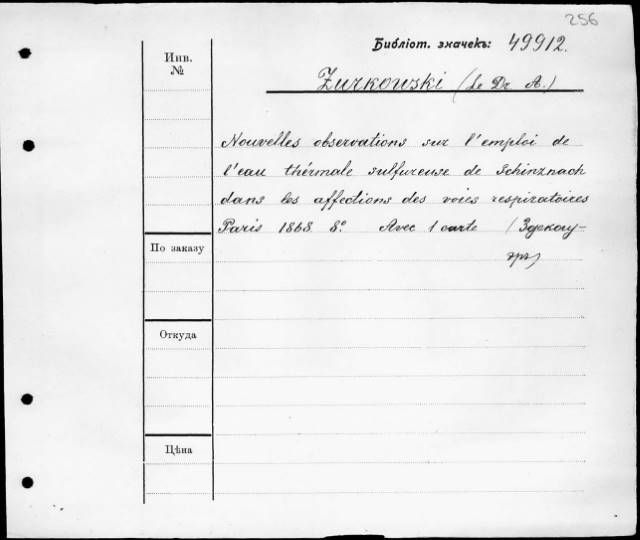 256
Библіот. значекъ: 49912.
Инв.
№
Zurkowski (Le Dr A.)
Nouvelles observations sur l'emploi de
l'eau thérmale sulfureuse de Schinznach
dans les affections des voies respiratoires
Paris 1868 8º Avec 1 carte (Здекау-
эръ)
По заказу
Откуда
Цѣна